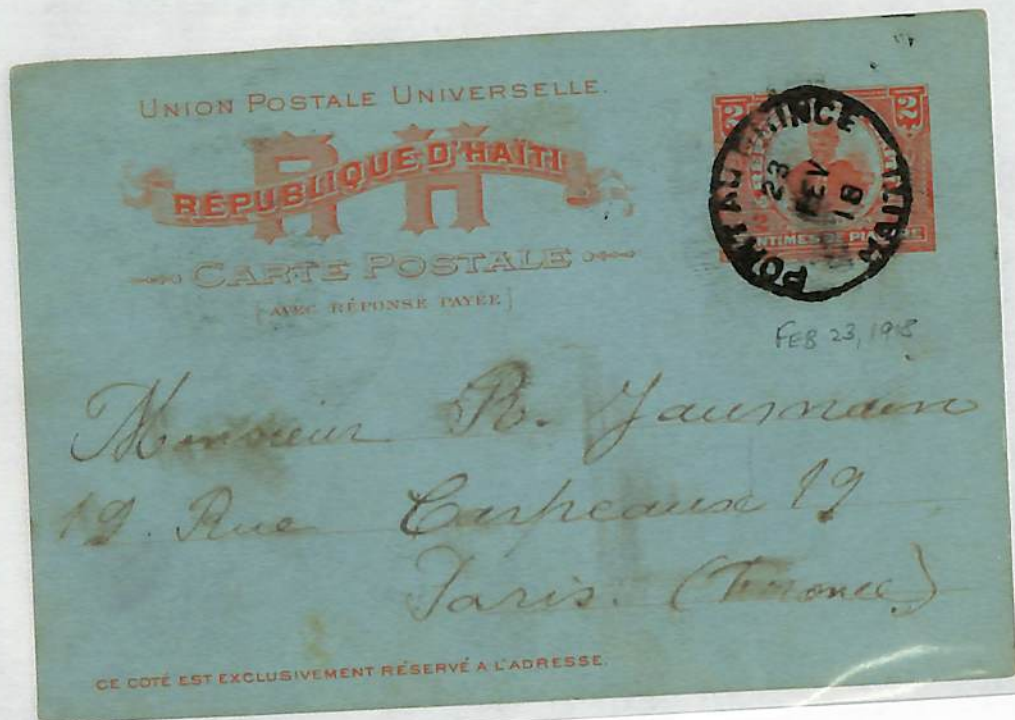 UNION POSTALE UNIVERSELLE.
RH
RÉPUBLIQUE D'HAÏTI
CARTE POSTALE
[AVEC RÉPONSE PAYÉE]
2 2
2 CENTIMES DE PIASTRE
PORT AU PRINCE
HAITI
23
FEV
18
FEB 23, 1918
Monsieur R. Jaumain
19. Rue Carpeaux 19
Paris. (France)
CE COTÉ EST EXCLUSIVEMENT RÉSERVÉ A L'ADRESSE.